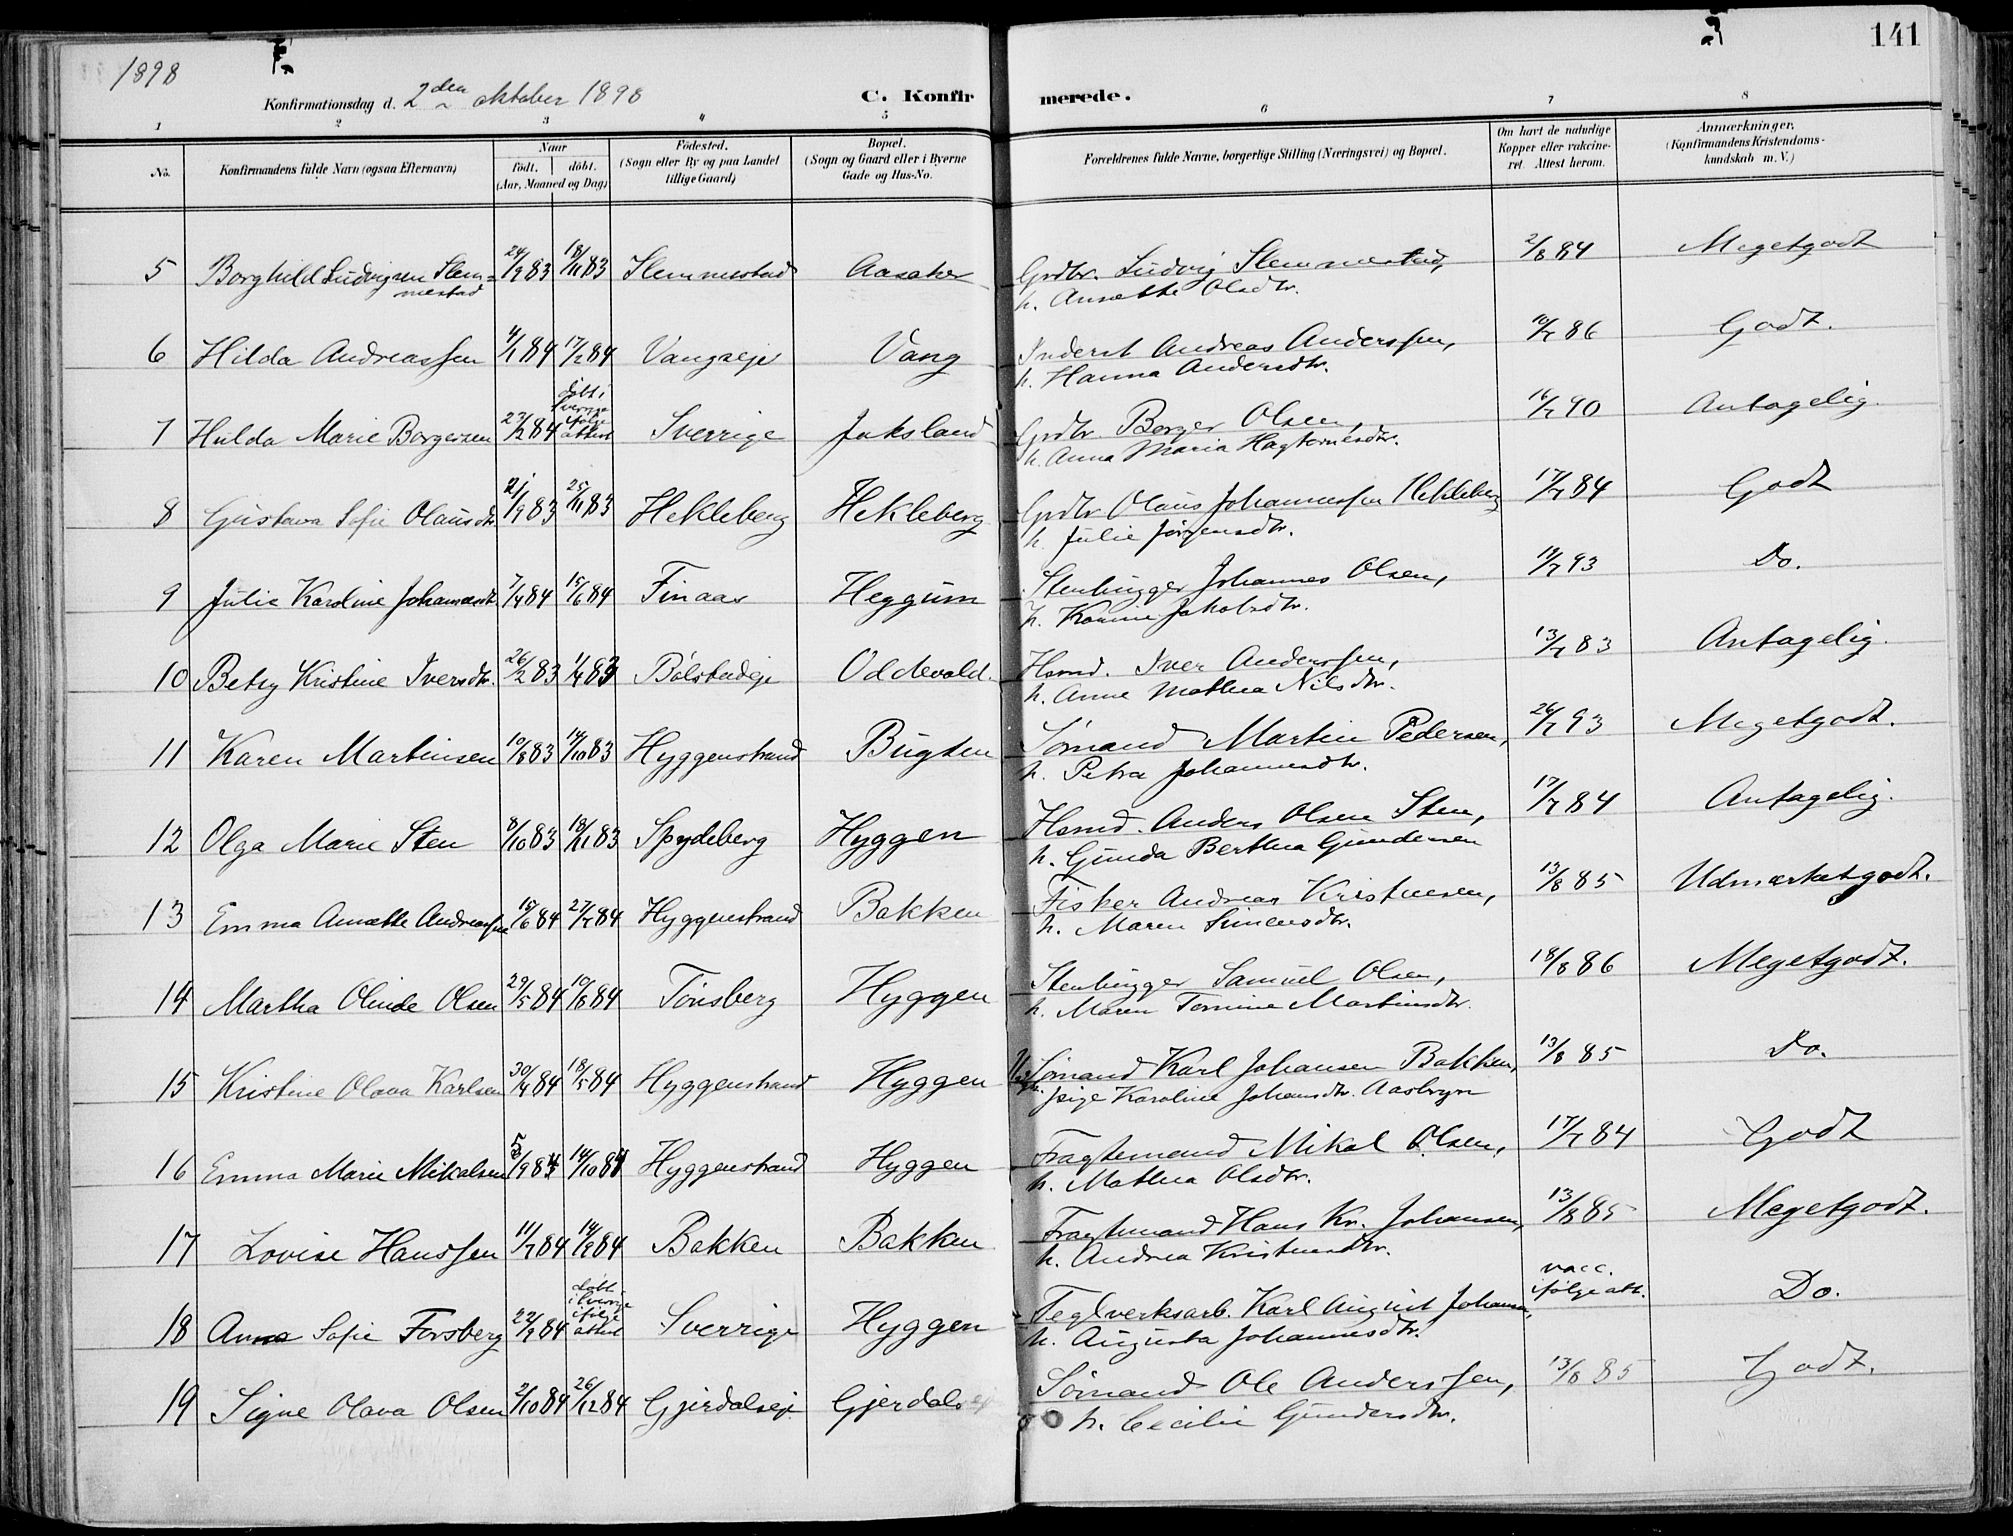 1898
141
Konfirmationsdag d. 2den oktober 1898
C. Konfirmerede.
1 2 3 4 5 6 7 8
No.
Konfirmandens fulde Navn (ogsaa Efternavn)
Naar
født. døbt.
(Aar, Maaned og Dag)
Fødested.
(Sogn eller By og paa Landet
tillige Gaard)
Bopæl.
(Sogn og Gaard eller i Byerne
Gade og Hus-No.
Forældrenes fulde Navne, borgerlige Stilling (Næringsvei) og Bopæl.
Om havt de naturlige
Kopper eller vakcine-
ret. Attest herom.
Anmærkninger.
(Konfirmandens Kristendoms-
kundskab m. V.)
5 Borghild Ludvigsen Slem= 24/9 83 18/11 83 Slemmestad Aasaker Grdbr. Ludvig Slemmestad, 2/8 84 Megetgodt
mestad h. Annette Olsdtr.
6 Hilda Andreassen 4/1 84 17/2 84 Vangseje Vang Inderst Andreas Anderssen, 10/7 86 Godt.
h. Hanna Andersdtr.
7 Hulda Marie Borgersen 23/2 84 døbt i Sverrige ifølge attest Sverrige Jaksland Grdbr. Borger Olsen, 16/7 90 Antagelig.
h. Anna Maria
8 Gustava Sofie Olausdtr 21/9 83 25/11 83 Hekleberg Hekleberg Grdbr Olaus Johannessen Hekleberg 17/7 84 Godt
h. Julie Jørgensdtr.
9 Julie Karoline Johannesdt 7/4 84 15/6 84 Finaas Heggum Stenhugger Johannes Olsen, 19/7 93 Do.
h. Karine Jakobsdtr.
10 Betsy Kristine Iversdtr. 26/2 83 1/4 83 Bølstadeje Oddevald. Hsmd. Iver Anderssen, 13/7 83 Antagelig.
h. Anne Mathea Nilsdtr.
11 Karen Martinsen 10/8 83 14/10 83 Hyggenstrand Bugten Sømand Martin Pedersen, 26/7 93 Megetgodt.
h. Petra Johannesdtr.
12 Olga Marie Sten 8/10 83 18/11 83 Spydeberg Hyggen Hsmd. Anders Olsen Sten, 17/7 84 Antagelig.
h. Gunda Berthea Gundersen
13 Emma Annette Andreassen 15/6 84 27/7 84 Hyggenstrand Bakken Fisker Andreas Kristensen, 13/8 85 Udmærketgodt.
h. Maren Simensdtr.
14 Martha Olinde Olsen 29/5 84 10/8 84 Tønsberg Hyggen Stenhugger Samuel Olsen, 18/8 86 Megetgodt.
h. Maren Tomine Martinsdtr.
15 Kristine Olava Karlsen 30/4 84 18/5 84 Hyggenstrand Hyggen Sømand Karl Johansen Bakken, 13/8 85 Do.
Pige Karoline Johansdtr. Aasbryn
16 Emma Marie Mikalsen 5/9 84 14/10 84 Hyggenstrand Hyggen Fragtemand Mikal Olsen, 17/7 84 Godt
h. Mathea Olsdtr.
17 Lovise Hanssen 11/7 84 14/9 84 Bakken Bakken Fragtemand Hans Kr. Johansen, 13/8 85 Megetgodt.
h. Andrea Kristensdtr.
18 Anna Sofie Forsberg 22/9 84 døbt i Sverrige ifølge attest Sverrige Hyggen Teglverksarb. Karl August Johansen, vacc. ifølge att. Do.
h. Augusta Johannesdtr.
19 Signe Olava Olsen 2/10 84 26/12 84 Gjerdalseje Gjerdalseje Sømand Ole Anderssen, 13/8 85 Godt.
h. Cecilie Gundersdtr.